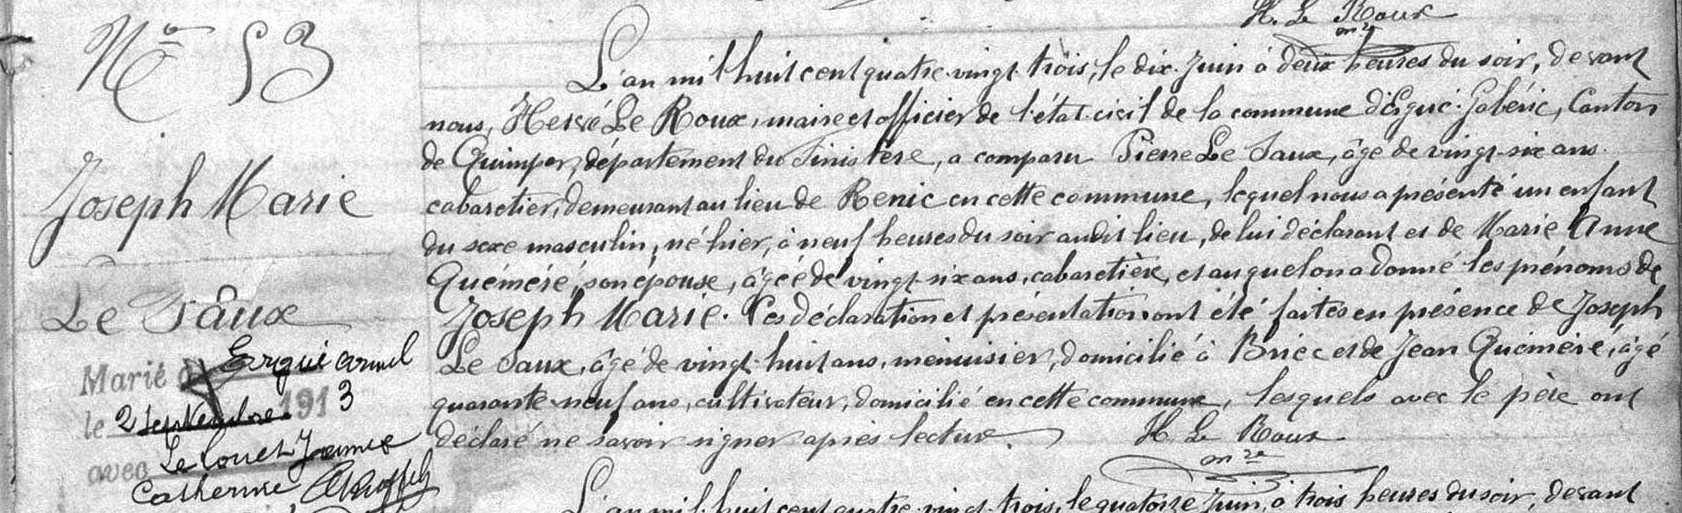 H. Le Roux
mre
Nº 53
Joseph Marie
Le Saux
Marié à Ergué Armel
le 2 septembre 1913
avec Le Jeanne
Catherine
L'an mil huit cent quatre-vingt-trois, le dix Juin à deux heures du soir, devant
nous, Hervé Le Roux, maire et officier de l'état-civil de la commune d'Ergué-Gabéric, Canton
de Quimper, département du Finistère, a comparu Pierre Le Saux, âgé de vingt-six ans
cabaretier, demeurant au lieu de Renic en cette commune, lequel nous a présenté un enfant
du sexe masculin, né hier, à neuf heures du soir audit lieu, de lui déclarant et de Marie Anne
Quéméré, son épouse, âgée de vingt-six ans, cabaretière, et auquel on a donné les prénoms de
Joseph Marie. Ces déclaration et présentation ont été faites en présence de Joseph
Le Saux, âgé de vingt-huit ans, menuisier, domicilié à Briec et de Jean Quéméré, âgé
quarante-neuf ans, cultivateur, domicilié en cette commune, lesquels avec le père ont
déclaré ne savoir signer après lecture.
H. Le Roux
mre
L'an mil huit cent quatre-vingt-trois, le quatorze Juin, à trois heures du soir, devant